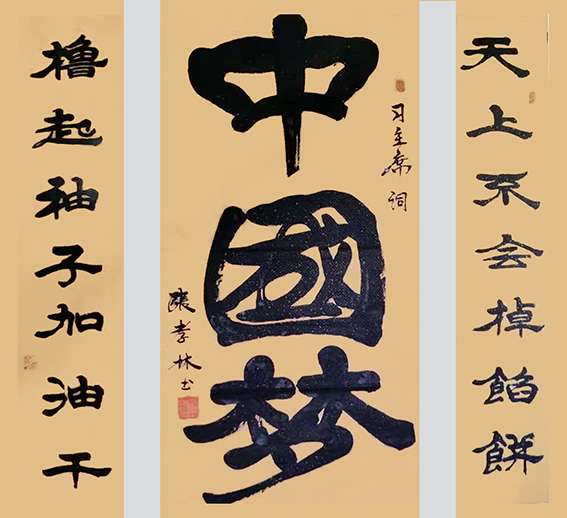 天上不会掉餡餅
习主席词
中國梦
張孝林书
撸起袖子加油干